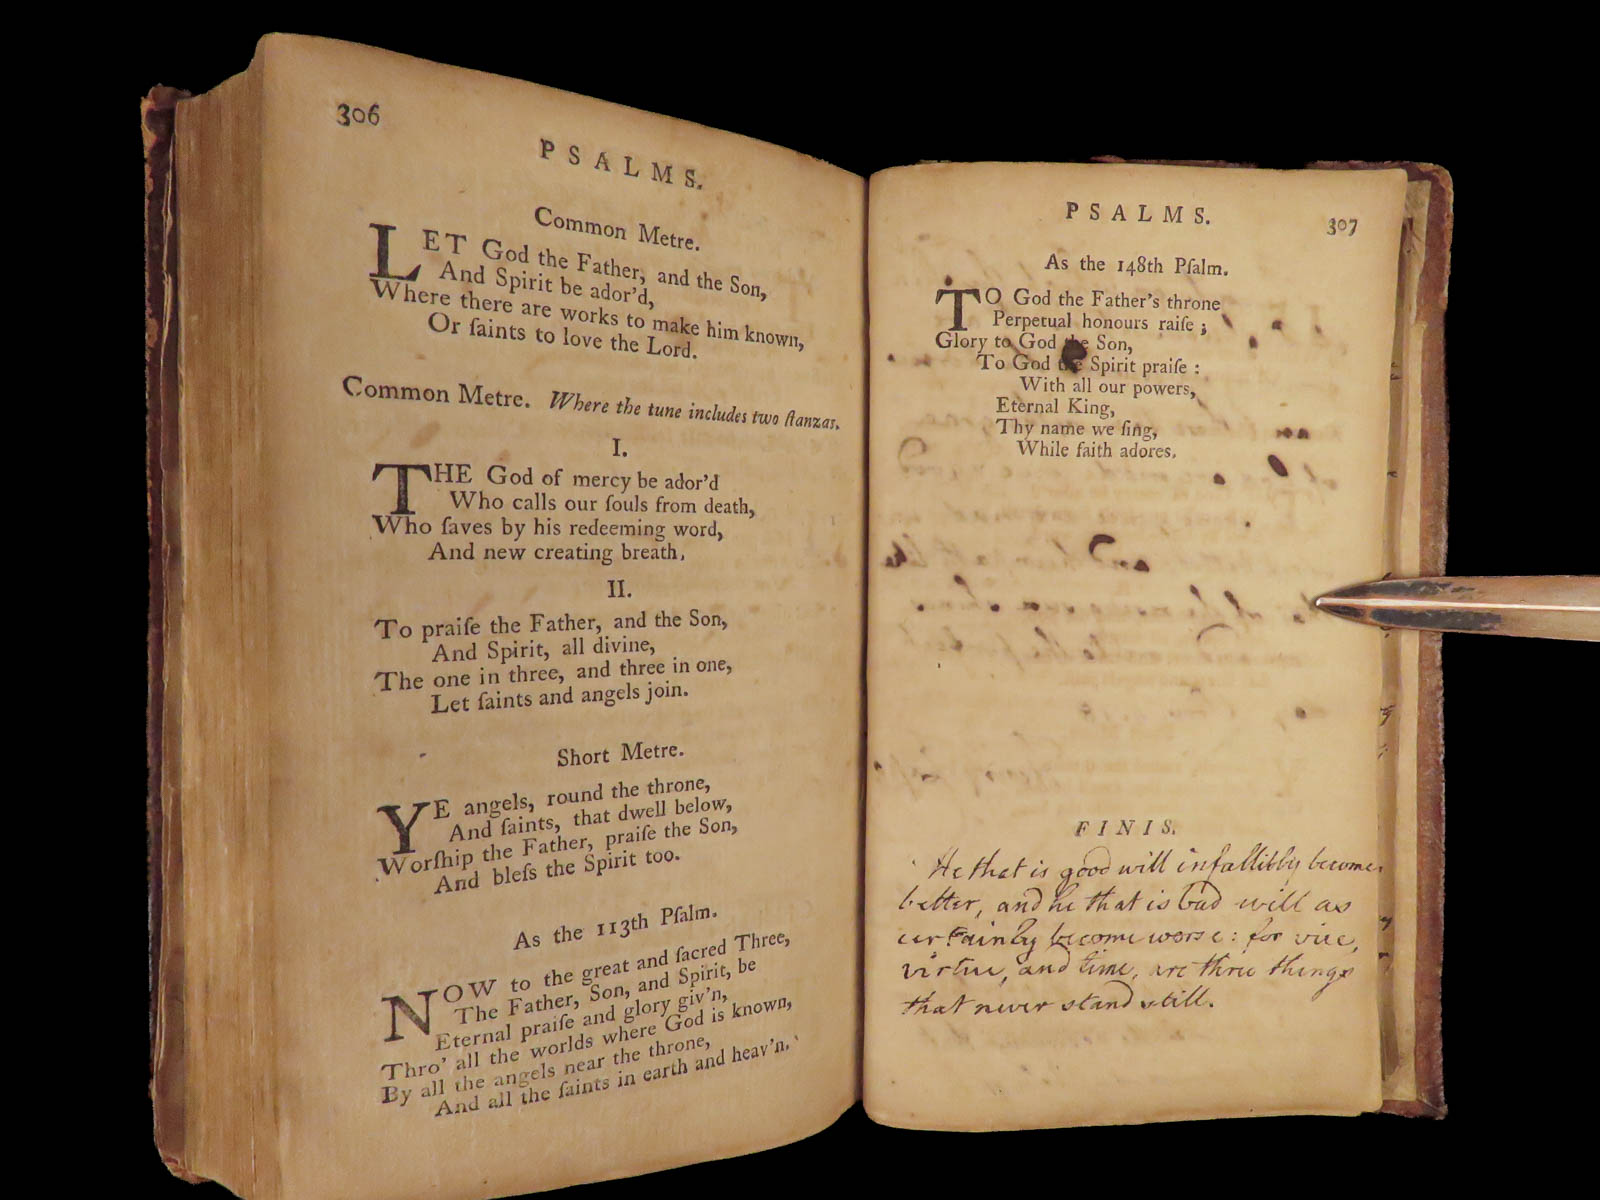 306
PSALMS.
Common Metre.
LET God the Father, and the Son,
And Spirit be ador'd,
Where there are works to make him known,
Or ſaints to love the Lord.
Common Metre. Where the tune includes two ſtanzas.
I.
THE God of mercy be ador'd
Who calls our ſouls from death,
Who ſaves by his redeeming word,
And new creating breath.
II.
To praiſe the Father, and the Son,
And Spirit, all divine,
The one in three, and three in one,
Let ſaints and angels join.
Short Metre.
YE angels, round the throne,
And ſaints, that dwell below,
Worſhip the Father, praiſe the Son,
And bleſs the Spirit too.
As the 113th Pſalm.
NOW to the great and ſacred Three,
The Father, Son, and Spirit, be
Eternal praiſe and glory giv'n,
Thro' all the worlds where God is known,
By all the angels near the throne,
And all the ſaints in earth and heav'n.
PSALMS.
307
As the 148th Pſalm.
TO God the Father's throne
Perpetual honours raiſe ;
Glory to God the Son,
To God the Spirit praiſe :
With all our powers,
Eternal King,
Thy name we ſing,
While faith adores.
FINIS.
He that is good will infallibly become
better, and he that is bad will as
certainly become worse: for vice,
virtue, and time, are three things
that never stand still.